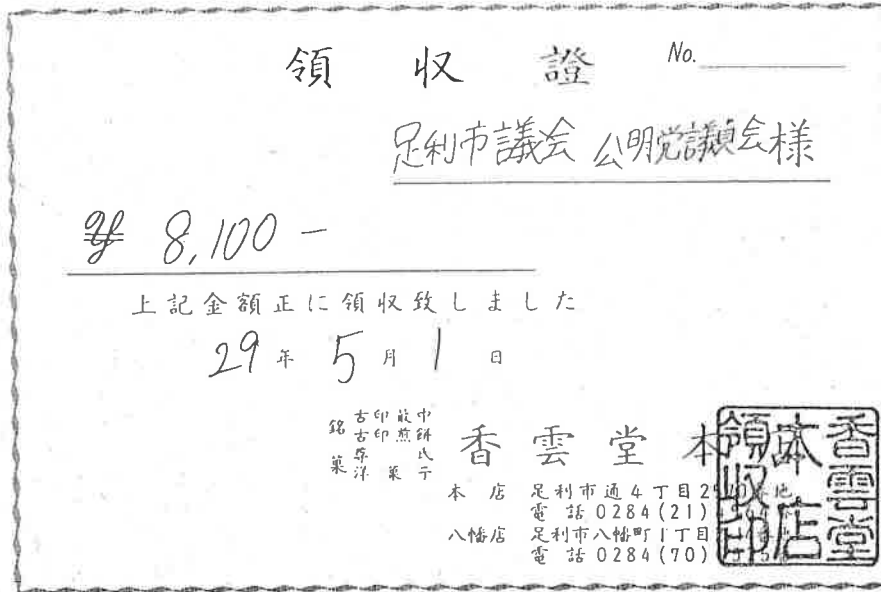 領収證 No.
足利市議会 公明党議員会様
¥ 8,100 -
上記金額正に領収致しました
29年 5月 1日
銘菓
香雲堂本
本店 足利市通4丁目
電話 0284(21)
八幡店 足利市八幡町1丁目
電話 0284(70)
香雲堂
本店
領収印